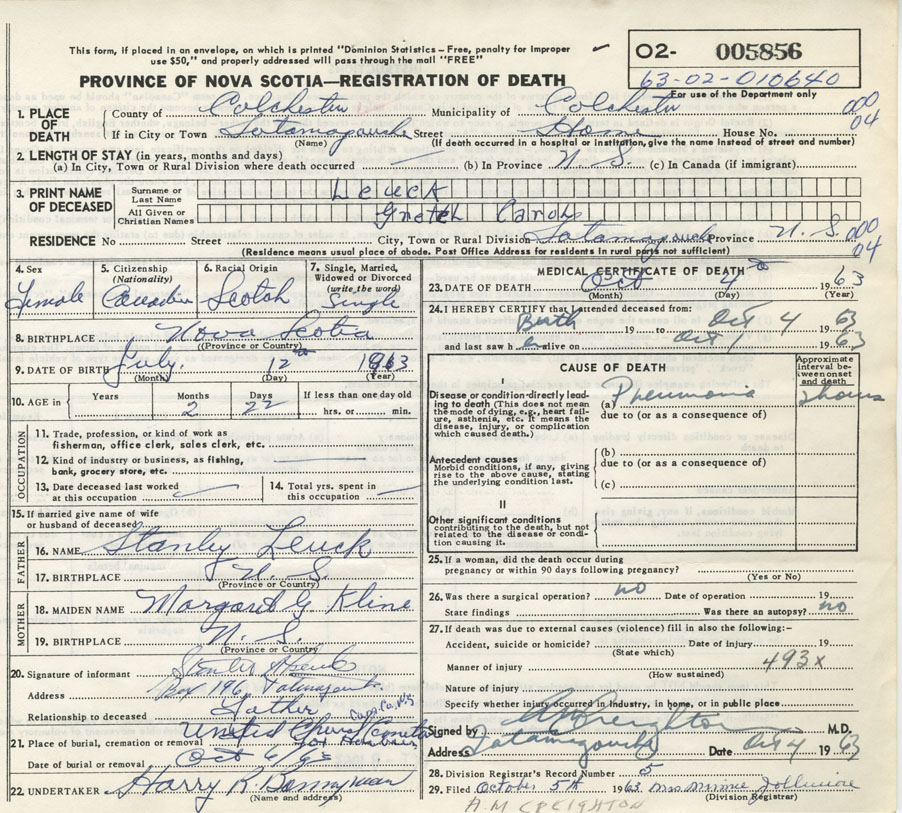 This form, if placed in an envelope, on which is printed "Dominion Statistics – Free, penalty for improper
use $50," and properly addressed will pass through the mail "FREE"
O2- 005856
63-02-010640
For use of the Department only
PROVINCE OF NOVA SCOTIA—REGISTRATION OF DEATH
1. PLACE OF DEATH
County of Colchester Municipality of Colchester 000
If in City or Town Tatamagouche Street Home House No. 04
(Name) (If death occurred in a hospital or institution, give the name instead of street and number)
2. LENGTH OF STAY (in years, months and days)
(a) In City, Town or Rural Division where death occurred (b) In Province N. S. (c) In Canada (if immigrant)
3. PRINT NAME OF DECEASED
Surname or Last Name Leuck
All Given or Christian Names Gretel Carol
RESIDENCE No Street City, Town or Rural Division Tatamagouche Province N. S. 000
04
(Residence means usual place of abode. Post Office Address for residents in rural parts not sufficient)
4. Sex Female
5. Citizenship (Nationality) Canadian
6. Racial Origin Scotch
7. Single, Married, Widowed or Divorced (write the word) Single
8. BIRTHPLACE Nova Scotia
(Province or Country)
9. DATE OF BIRTH July. 12th 1963
(Month) (Day) (Year)
10. AGE in Years Months Days If less than one day old
2 22 hrs. or min.
OCCUPATION
11. Trade, profession, or kind of work as
fisherman, office clerk, sales clerk, etc.
12. Kind of industry or business, as fishing,
bank, grocery store, etc.
13. Date deceased last worked
at this occupation
14. Total yrs. spent in
this occupation
15. If married give name of wife
or husband of deceased
FATHER
16. NAME Stanley Leuck
17. BIRTHPLACE N. S.
(Province or Country)
MOTHER
18. MAIDEN NAME Margaret G. Kline
19. BIRTHPLACE N. S.
(Province or Country)
20. Signature of informant
Address Box 196, Tatamagouche
Relationship to deceased Father
21. Place of burial, cremation or removal United Church
Date of burial or removal Oct 6/63
22. UNDERTAKER Harry R. Bonnyman
(Name and address)
MEDICAL CERTIFICATE OF DEATH
23. DATE OF DEATH Oct 4th 1963
(Month) (Day) (Year)
24. I HEREBY CERTIFY that I attended deceased from:
Birth 19 to Oct 4 1963
and last saw her alive on Oct 1 1963
CAUSE OF DEATH
Approximate interval between onset and death
I
Disease or condition directly leading to death (This does not mean the mode of dying, e.g., heart failure, asthenia, etc. It means the disease, injury, or complication which caused death.)
(a) Pneumonia 2 hours
due to (or as a consequence of)
Antecedent causes
Morbid conditions, if any, giving rise to the above cause, stating the underlying condition last.
(b)
due to (or as a consequence of)
(c)
II
Other significant conditions
contributing to the death, but not related to the disease or condition causing it.
25. If a woman, did the death occur during
pregnancy or within 90 days following pregnancy?
(Yes or No)
26. Was there a surgical operation? no Date of operation 19
State findings Was there an autopsy? no
27. If death was due to external causes (violence) fill in also the following:–
Accident, suicide or homicide? Date of injury 19
(State which)
Manner of injury 493x
(How sustained)
Nature of injury
Specify whether injury occurred in industry, in home, or in public place
Signed by AM Creighton M.D.
Address Tatamagouche Date Oct 4 1963
28. Division Registrar's Record Number 5
29. Filed October 5th 1963 Mrs Minnie Jollimore
(Division Registrar)
A.M CREIGHTON